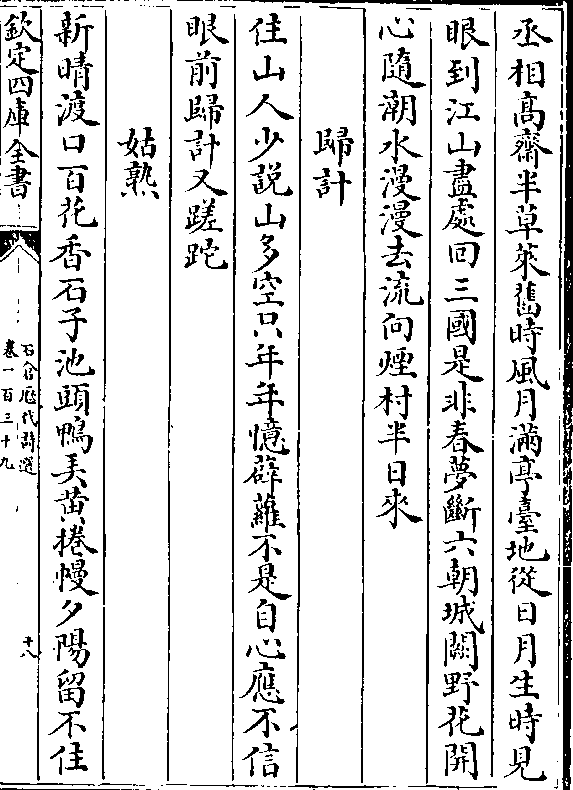 丞相髙齋半草萊舊時風月滿亭臺地從日月生時見
眼到江山盡處回三國是非春夢斷六朝城闕野花開
心隨潮水漫漫去流向煙村半日來
歸計
住山人少説山多空只年年憶薜蘿不是自心應不信
眼前歸計又蹉跎
姑熟
新晴渡口百花香石子池頭鴨弄黄捲幔夕陽留不住
欽定四庫全書
石倉歴代詩選
卷一百三十九
十八